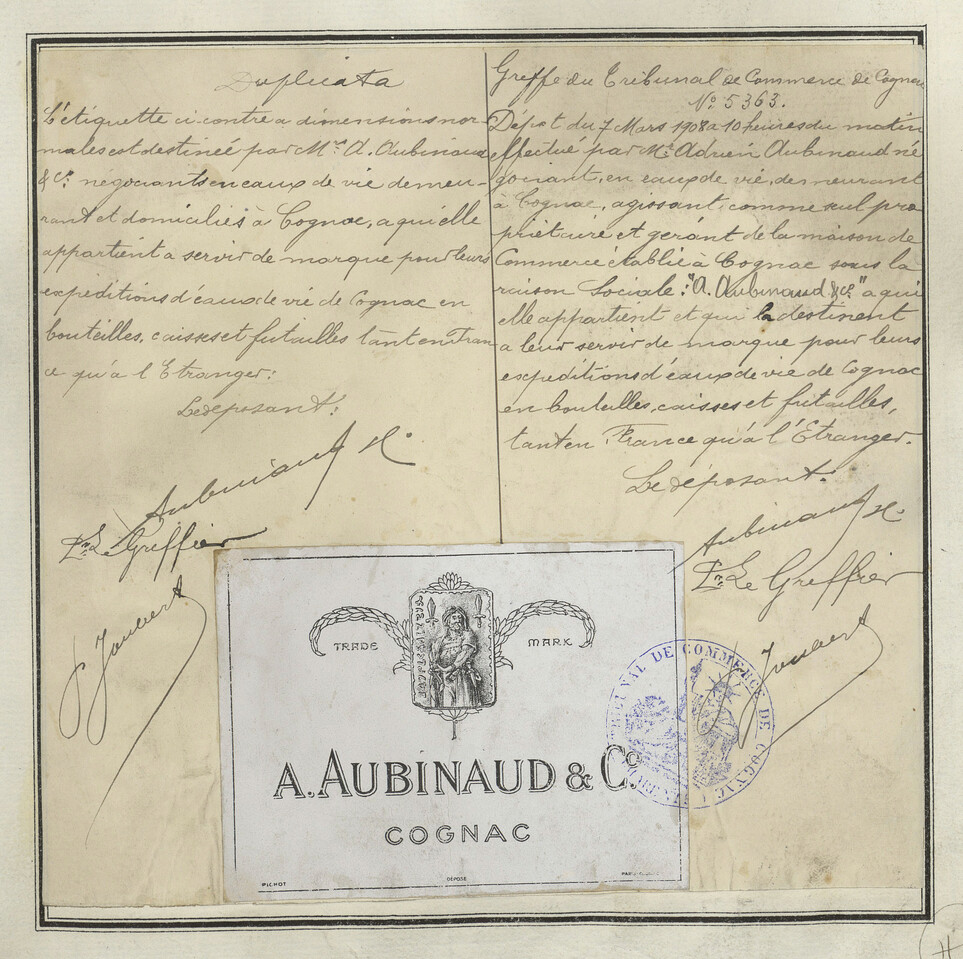 Duplicata
L'étiquette ci-contre a dimensions nor
males est destinée par Mr. A. Aubinaud
& Co. négociants en eaux de vie demeu-
rant et domiciliés à Cognac, a qui elle
appartient a servir de marque pour leurs
expéditions d'eaux de vie de Cognac en
bouteilles, caisses et futailles tant en Fran
ce qu'à l'Etranger:
Le déposant:
Aubinaud
Pr. Le Greffier
Joubert
Greffe du Tribunal de Commerce de Cognac
No. 5363.
Dépot du 7 Mars 1908 a 10 heures du matin
effectué par Mr. Adrien Aubinaud né
gociant, en eaux de vie, demeurant
à Cognac, agissant comme seul pro
priétaire et gérant de la maison de
Commerce établie à Cognac sous la
raison Sociale: "A. Aubinaud & Co." a qui
elle appartient et qui la destinent
a leur servir de marque pour leurs
expéditions d'eaux de vie de Cognac
en bouteilles, caisses et futailles,
tant en France qu'à l'Etranger.
Le déposant.
Aubinaud
Pr. Le Greffier
Joubert
TRADE MARK
A. AUBINAUD & Co.
COGNAC
PICHOT
DÉPOSÉ
TRIBUNAL DE COMMERCE DE COGNAC
H